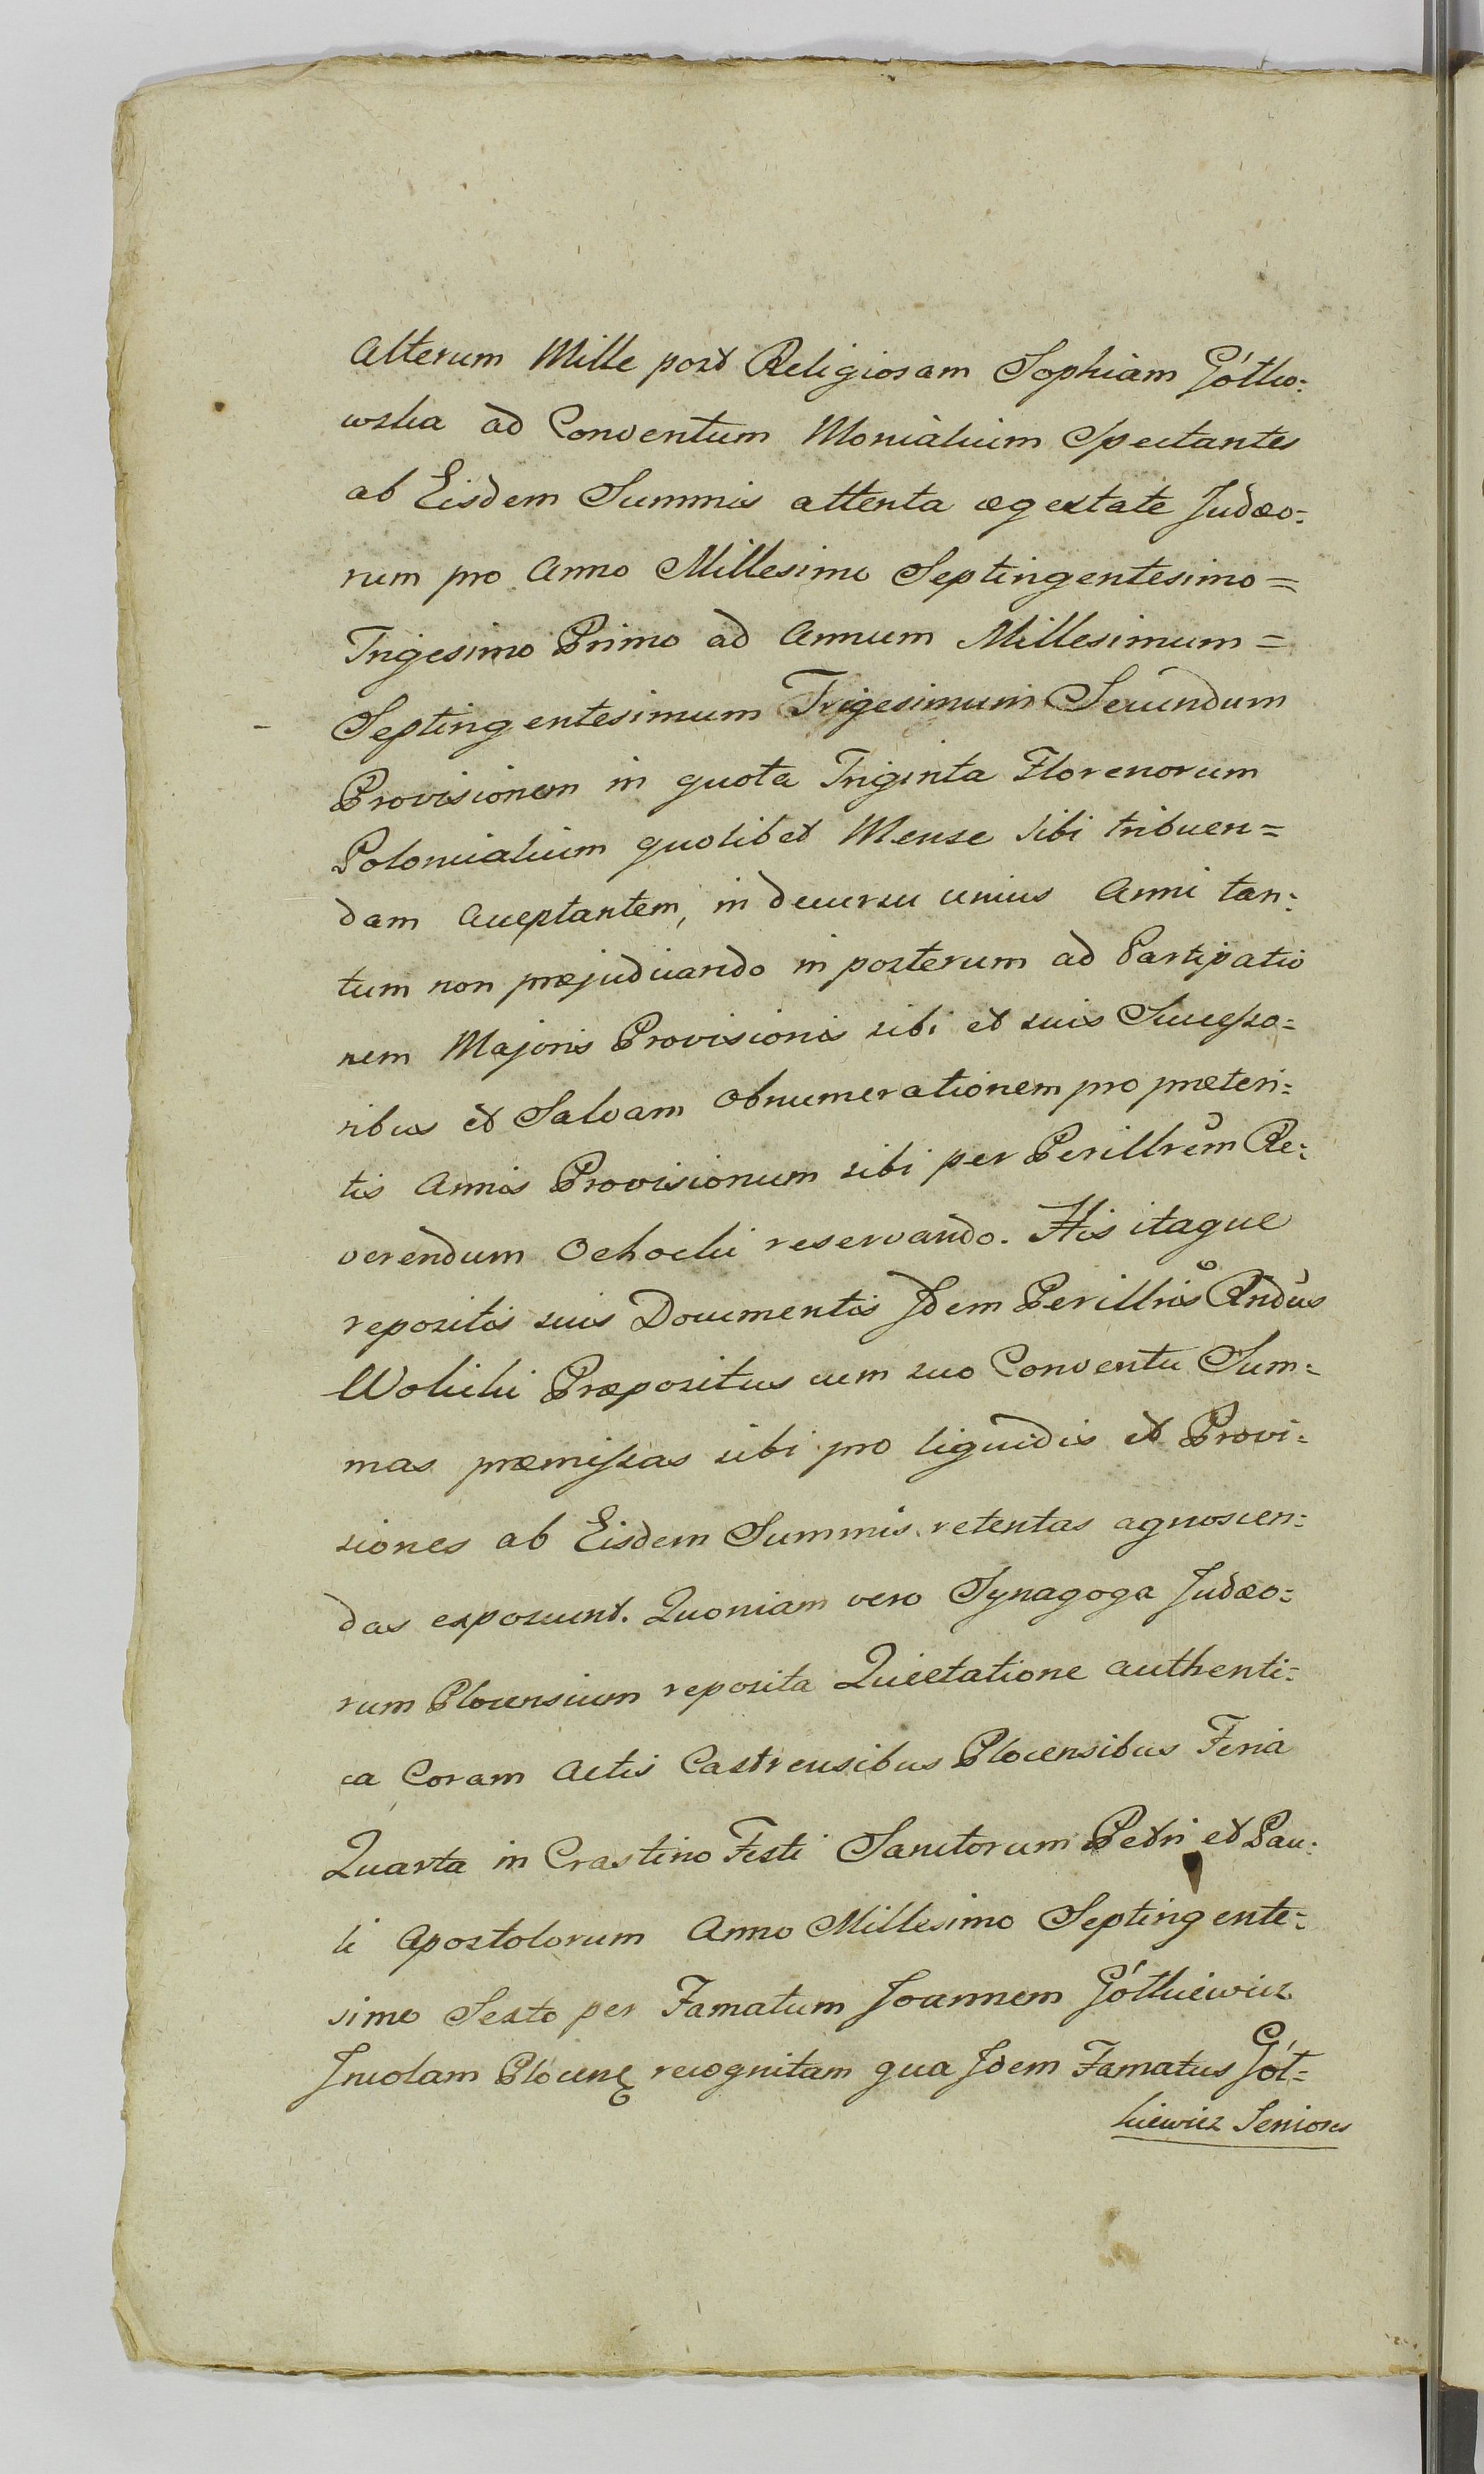 Alterum Mille post Religiosam Sophiam Gótko=
wska ad Conventum Monialium Spectantes
ab Eisdem Summis attenta ægestate Judæo=
rum pro Anno Millesimo Septingentesimo=
Trigesimo Primo ad Annum Millesimum=
Septingentesimum Trigesimum Secundum
Provisionem in quota Triginta Florenorum
Polonicalium quolibet Mense sibi tribuen=
dam Acceptantem, in decursu unius Anni tan=
tum non præjudicando in posterum ad Partipatio
nem Majoris Provisionis sibi et suis Successo=
ribus et Salvam Obnumerationem pro præteri=
tis Annis Provisionum sibi per Perillrem Re=
verendum Ochocki reservando. His itaque
repositis suis Documentis Jdem Perillris Rndus
Wolicki Præpositus cum suo Conventu Sum=
mas præmissas sibi pro liquidis et Provi=
siones ab Eisdem Summis retentas agnoscen=
das exposcunt. Quoniam vero Synagoga Judæo=
rum Plocensium reposita Quietatione authenti=
ca Coram Actis Castrensibus Plocensibus Feria
Quarta in Crastino Festi Sanctorum Petri et Pau=
li Apostolorum Anno Millesimo Septingente=
simo Sexto per Famatum Joannem Gótkiewicz
Jncolam Plocensę recognitam qua Jdem Famatus Gót=
kiewicz Seniores